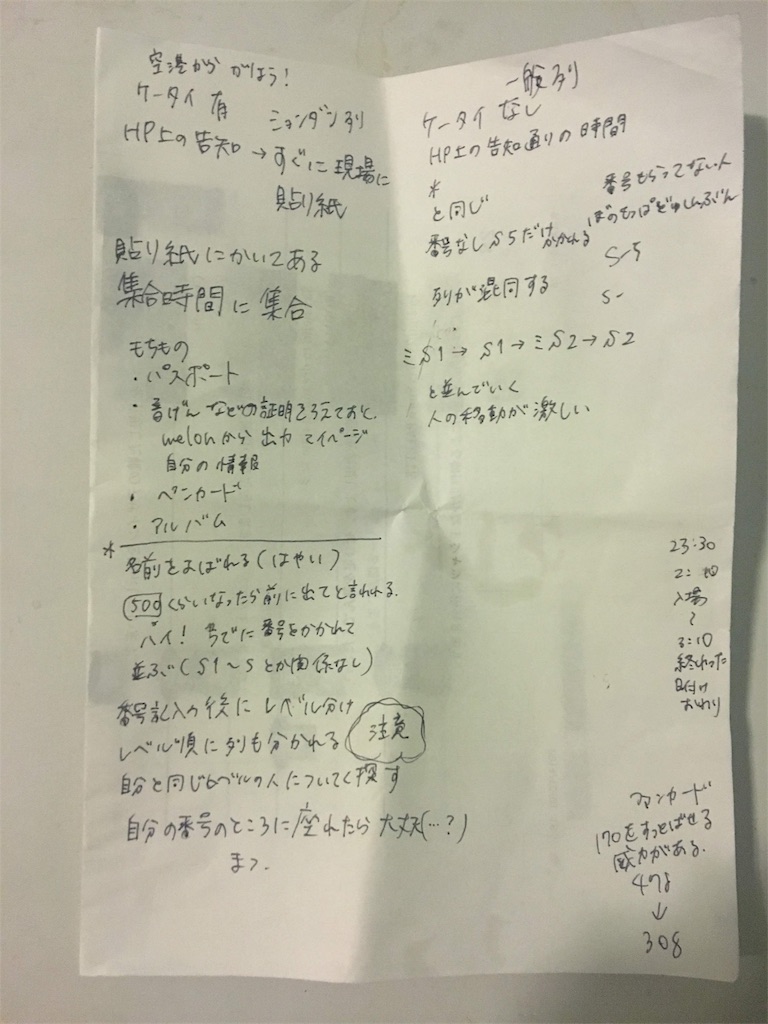 空港から がんばろう!
ケータイ 有
ミョンダン列
HP上の告知 → すぐに現場に
貼り紙
貼り紙にかいてある
集合時間に集合
もちもの
・パスポート
・音げんなどの証明をそろえておく
melonから出力 マイページ
自分の情報
・ペンカード
・アルバム
*
名前をよばれる(はやい)
500くらいなったら前に出てと言われる.
ハイ! 番号をかかれて
並ぶ(S1〜Sとか関係なし)
番号記入の後に レベル分け
レベル順に列も分かれる
注意
自分と同じレベルの人についてく 探す
自分の番号のところに座れたら大丈夫(…?)
まつ.
一般列
ケータイ なし
HP上の告知通りの時間
*
と同じ
番号なし S5だけかかれる
番号もらってない人
S-5
S-
列が混同する
ミS1→ S1→ミS2→S2
と並んでいく
人の移動が激しい
23:30
入場
3:10
終わった
日付け
おわり
ファンカード
170をすっとばせる
威力がある.
478
↓
308